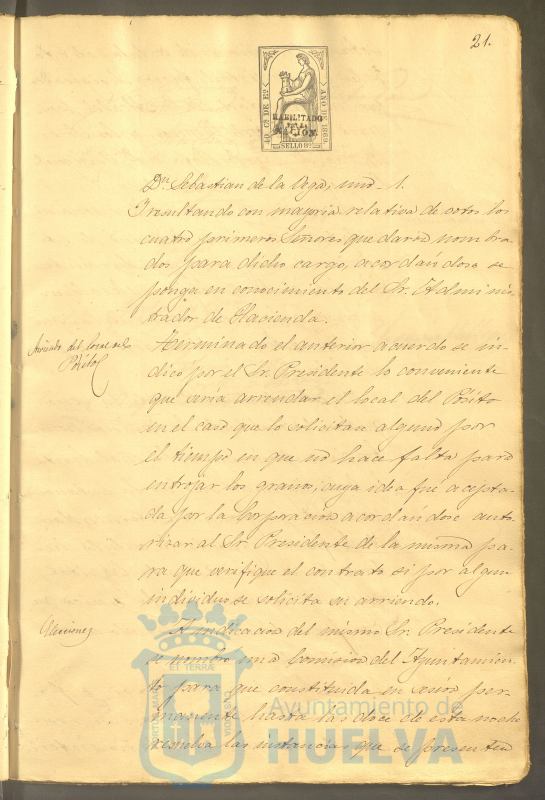 21.
10 Cs DE Eo
AÑO DE 1869
HABILITADO
POR LA
NACION.
SELLO 9º
Dn. Sebastian de la Vega, uno 1.
Y resultando con mayoria relativa de votos los
cuatro primeros Señores quedaron nombra-
dos para dicho cargo, acordandose se
ponga en conocimiento del Sr. Adminis-
trador de Hacienda.
Arriendo del local del
Pósito
Terminado el anterior acuerdo se in-
dicó por el Sr. Presidente lo conveniente
que seria arrendar el local del Pósito
en el caso que lo solicitase alguno por
el tiempo en que no hace falta para
entrojar los granos, cuya idea fué acepta-
da por la Corporacion acordandose auto-
rizar al Sr. Presidente de la misma pa-
ra que verifique el contrato si por algun
individuo se solicita su arriendo.
A indicacion del mismo Sr. Presidente
se nombró una Comision del Ayuntamien-
to para que constituida en sesion per-
manente hasta las doce de esta noche
resuelva las instancias que se presenten
Ayuntamiento de
HUELVA